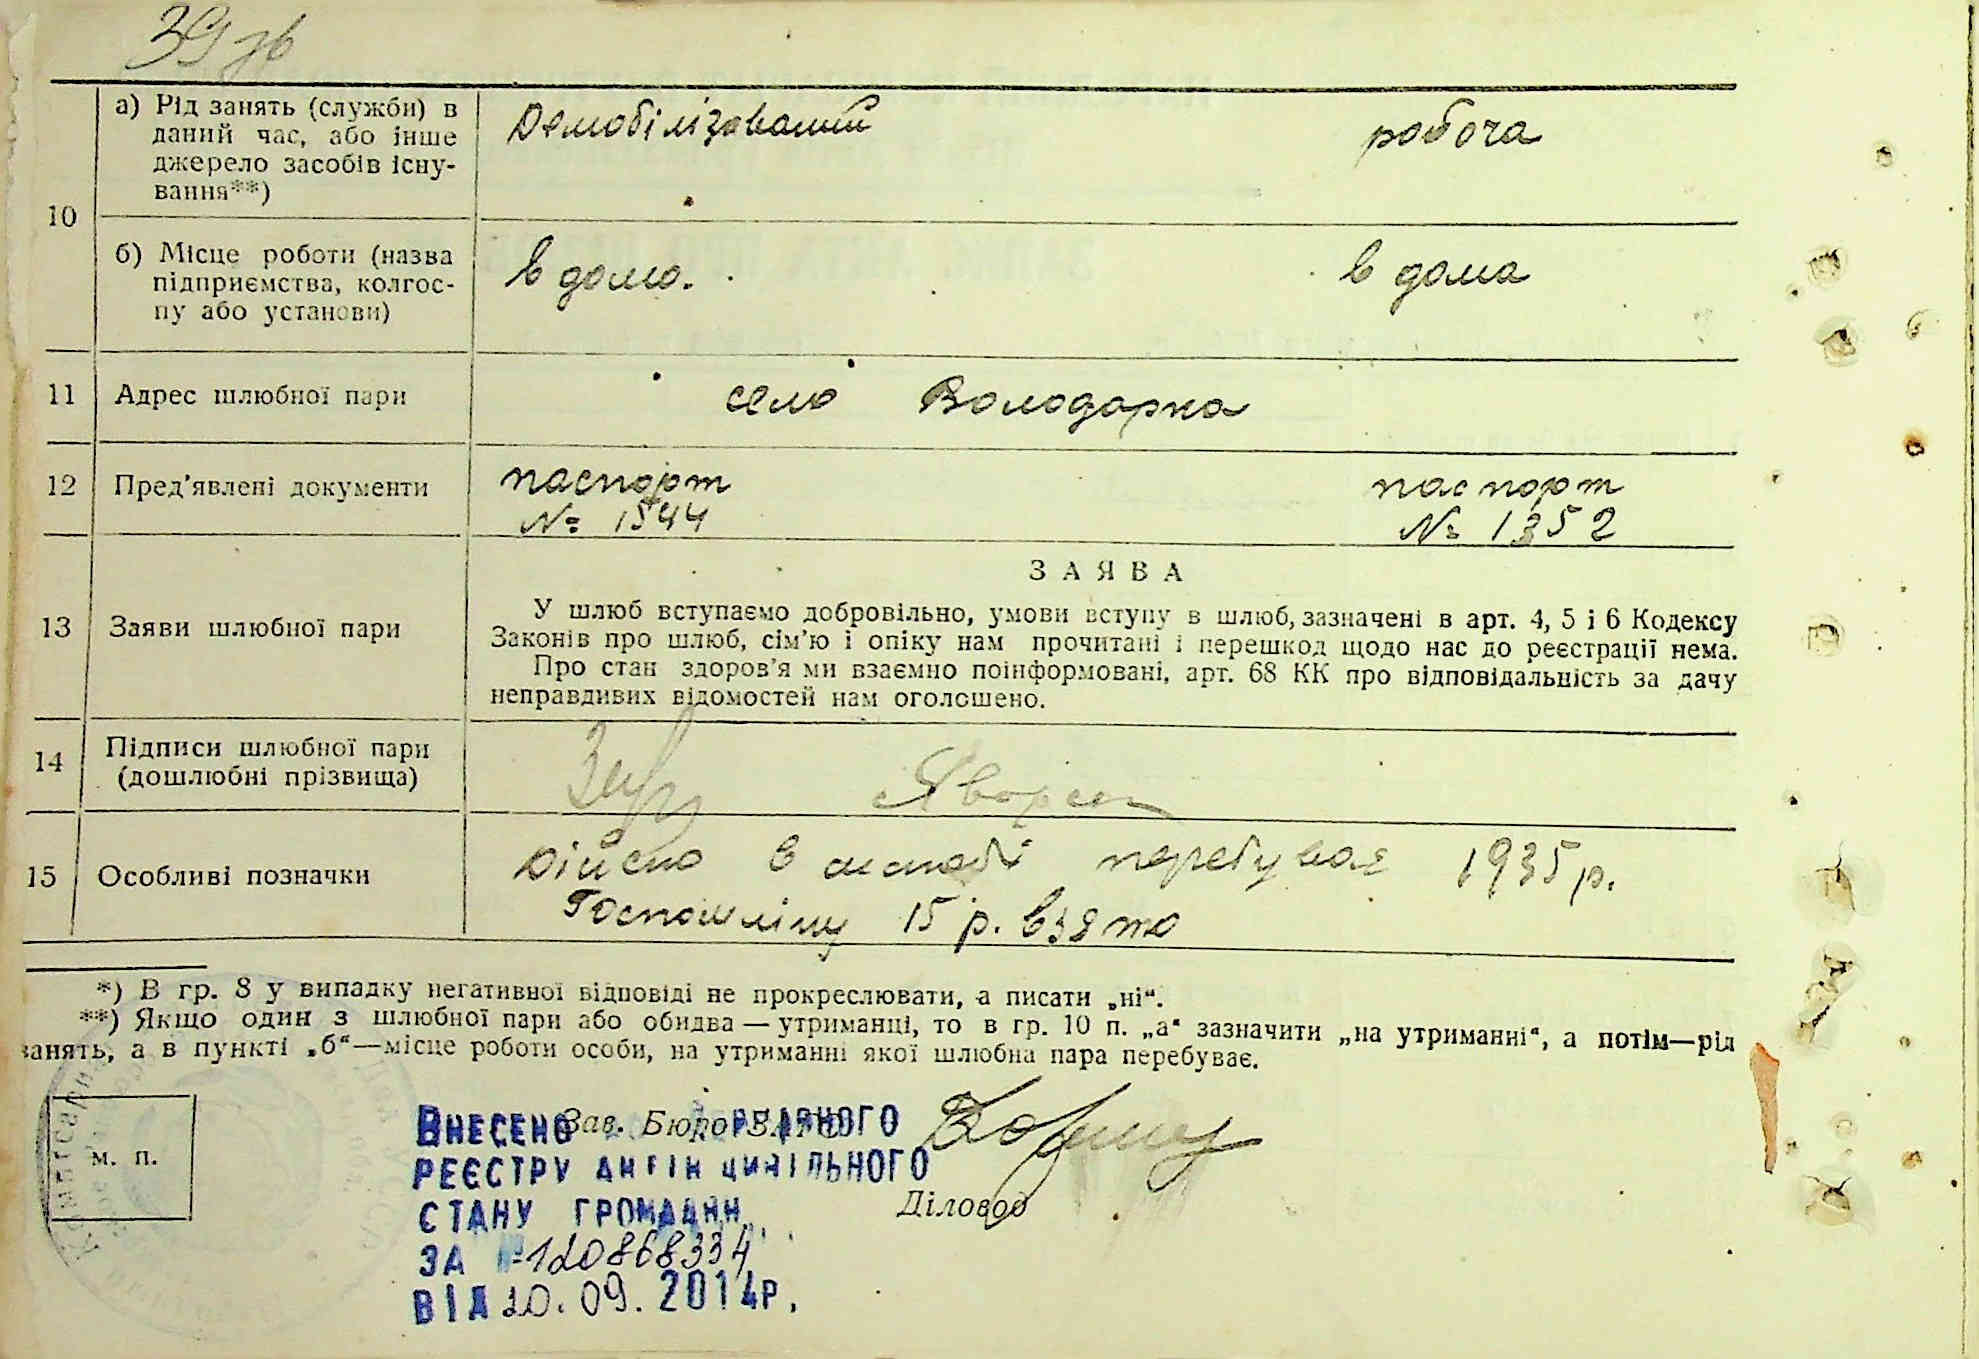 39 зв
10
а) Рід занять (служби) в
даний час, або інше
джерело засобів існу-
вання**)
Демобілізований робоча
б) Місце роботи (назва
підприємства, колгос-
пу або установи)
в дома. в дома
11 Адрес шлюбної пари село Володарка
12 Пред'явлені документи паспорт паспорт
№ 1544 № 1352
ЗАЯВА
13 Заяви шлюбної пари
У шлюб вступаємо добровільно, умови вступу в шлюб, зазначені в арт. 4, 5 і 6 Кодексу
Законів про шлюб, сім'ю і опіку нам прочитані і перешкод щодо нас до реєстрації нема.
Про стан здоров'я ми взаємно поінформовані, арт. 68 КК про відповідальність за дачу
неправдивих відомостей нам оголошено.
14 Підписи шлюбної пари
(дошлюбні прізвища)
15 Особливі позначки
Дійсно в шлюбі перебуває 1935 р.
Госпошліну 15 р. взято
*) В гр. 8 у випадку негативної відповіді не прокреслювати, а писати „ні“.
**) Якщо один з шлюбної пари або обидва — утриманці, то в гр. 10 п. „а“ зазначити „на утриманні“, а потім—рід
занять, а в пункті „б“—місце роботи особи, на утриманні якої шлюбна пара перебуває.
м. п.
Зав. Бюро ЗАГС
Діловод
ВНЕСЕНО ДО ДЕРЖАВНОГО
РЕЄСТРУ АКТІВ ЦИВІЛЬНОГО
СТАНУ ГРОМАДЯН
ЗА № 120868334
ВІД 10.09.2014р.